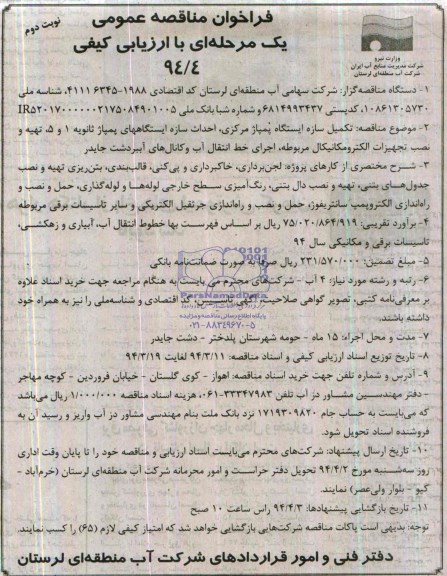 فراخوان مناقصه عمومی
یک مرحله‌ای با ارزیابی کیفی
۹۴/۴
نوبت دوم
وزارت نیرو
شرکت مدیریت منابع آب ایران
شرکت آب منطقه‌ای لرستان
۱- دستگاه مناقصه‌گزار: شرکت سهامی آب منطقه‌ای لرستان کد اقتصادی ۱۹۸۸-۶۳۴۵ ۴۱۱۱، شناسه ملی
۱۰۸۶۱۳۰۵۷۳۰، کدپستی ۶۸۱۴۹۹۳۴۳۷ و شماره شبا بانک ملی IR۵۲۰۱۷۰۰۰۰۰۰۲۱۷۵۰۸۴۹۰۱۰۰۵
۲- موضوع مناقصه: تکمیل سازه ایستگاه پمپاژ مرکزی، احداث سازه ایستگاههای پمپاژ ثانویه ۱ و ۵، تهیه و
نصب تجهیزات الکترومکانیکال مربوطه، اجرای خط انتقال آب وکانال‌های آببردشت جایدر
۳- شرح مختصری از کارهای پروژه: لجن‌برداری، خاکبرداری و پی‌کنی، قالب‌بندی، بتن‌ریزی تهیه و نصب
جدول‌های بتنی، تهیه و نصب دال بتنی، رنگ‌آمیزی سطح خارجی لوله‌ها و لوله‌گذاری، حمل و نصب و
راه‌اندازی الکتروپمپ سانتریفوژ، حمل و نصب و راه‌اندازی جرثقیل الکتریکی و سایر تاسیسات برقی مربوطه
۴- برآورد تقریبی: ۷۵/۰۲۰/۸۶۴/۹۱۹ ریال بر اساس فهرست بها خطوط انتقال آب، آبیاری و زهکشی،
تاسیسات برقی و مکانیکی سال ۹۴
۵- مبلغ تضمین: ۲۳۱/۵۷۰/۰۰۰ ریال صرفا به صورت ضمانت‌نامه بانکی
۶- رتبه و رشته مورد نیاز: ۴ آب - شرکت‌های محترم می بایست به هنگام مراجعه جهت خرید اسناد علاوه
بر معرفی‌نامه کتبی، تصویر گواهی صلاحیت، آگهی تاسیس، کد اقتصادی و شناسه‌ملی را نیز به همراه خود
داشته باشند.
۷- مدت و محل اجراء: ۱۵ ماه - حومه شهرستان پلدختر - دشت جایدر
۸- تاریخ توزیع اسناد ارزیابی کیفی و اسناد مناقصه: ۹۴/۳/۱۱ لغایت ۹۴/۳/۱۹
۹- آدرس و شماره تلفن جهت خرید اسناد مناقصه: اهواز - کوی گلستان - خیابان فروردین - کوچه مهاجر
- دفتر مهندسین مشاور دز آب تلفن ۳۳۳۴۷۹۸۳-۰۶۱، هزینه اسناد مناقصه ۱/۰۰۰/۰۰۰ ریال می‌باشد
که می‌بایست به حساب جام ۱۷۱۹۳۰۹۸۲۰ نزد بانک ملت بنام مهندسی مشاور دز آب واریز و رسید آن به
فروشنده اسناد تحویل شود.
۱۰- تاریخ ارسال پیشنهاد: شرکت‌های محترم می‌بایست اسناد ارزیابی و مناقصه خود را تا پایان وقت اداری
روز سه‌شنبه مورخ ۹۴/۴/۲ تحویل دفتر حراست و امور محرمانه شرکت آب منطقه‌ای لرستان (خرم‌آباد -
کیو - بلوار ولی‌عصر) نمایند.
۱۱- تاریخ بازگشایی پیشنهادها: ۹۴/۴/۳ راس ساعت ۱۰ صبح
توجه: بدیهی است پاکات مناقصه شرکت‌هایی بازگشایی خواهد شد که امتیاز کیفی لازم (۶۵) را کسب نمایند.
دفتر فنی و امور قراردادهای شرکت آب منطقه‌ای لرستان
ParsNamadData
پایگاه اطلاع رسانی مناقصه و مزایده
۰۲۱-۸۸۳۴۹۶۷۰-۵